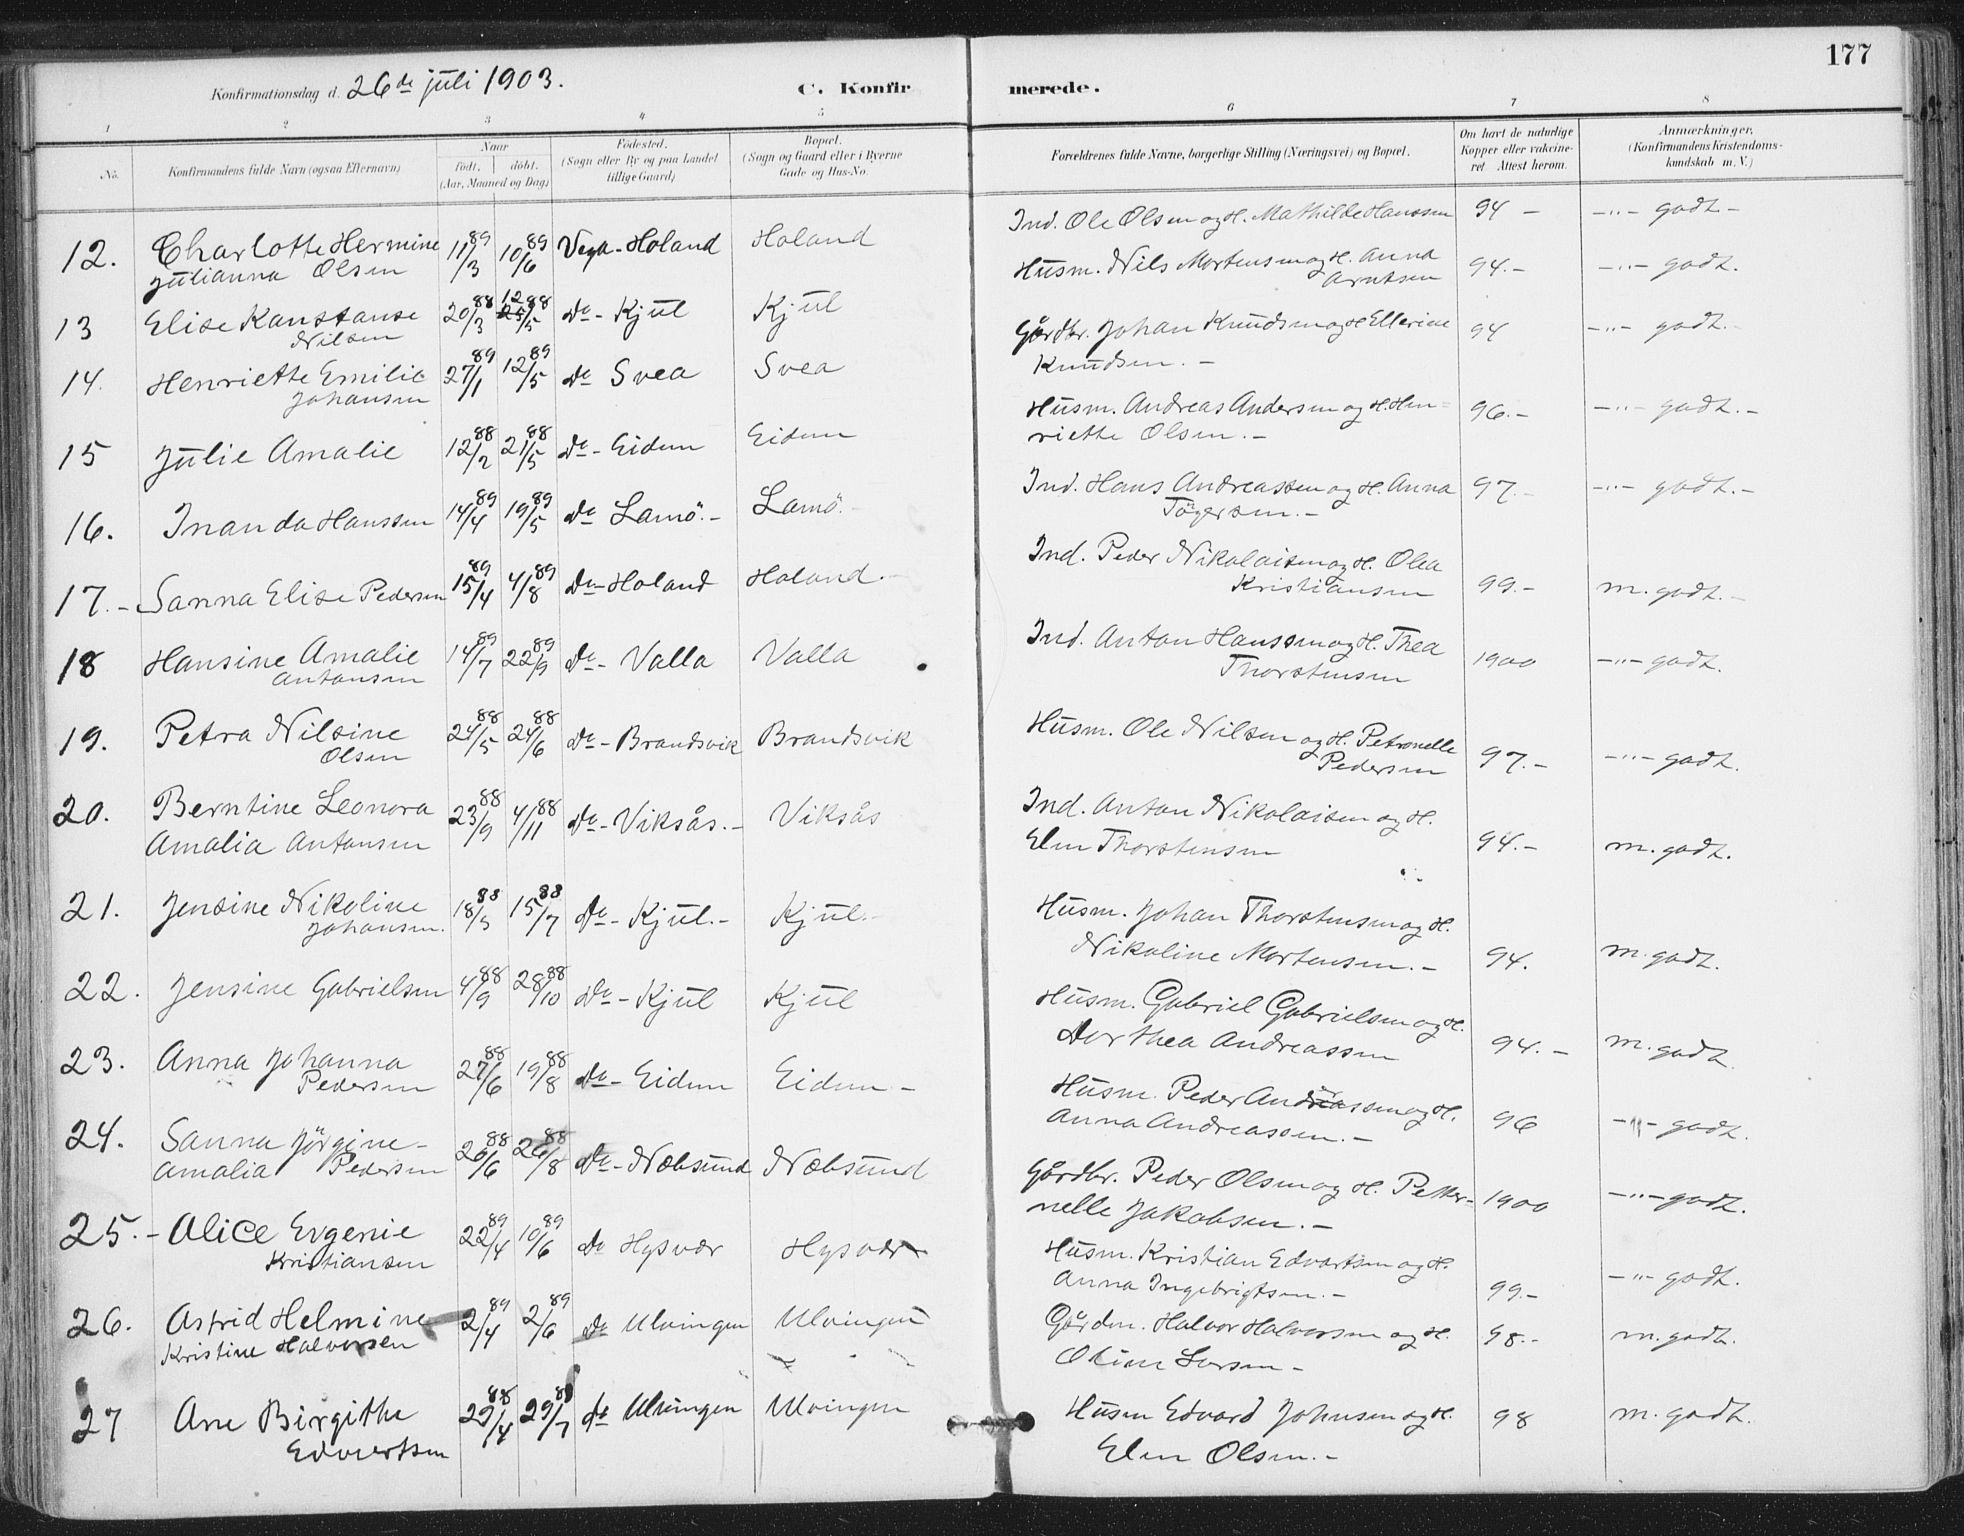 177
Konfirmationsdag d. 26de juli 1903.
C. Konfirmerede.
1 2 3 4 5 6 7 8
No.
Konfirmandens fulde Navn (ogsaa Efternavn)
Naar
født. døbt.
(Aar, Maaned og Dag)
Fødested.
(Sogn eller By og paa Landet
tillige Gaard)
Bopæl.
(Sogn og Gaard eller i Byerne
Gade og Hus-No.
Forældrenes fulde Navne, borgerlige Stilling (Næringsvei) og Bopæl.
Om havt de naturlige
Kopper eller vakcine-
ret Attest herom.
Anmærkninger.
(Konfirmandens Kristendoms-
kundskab m. V.)
12. Charlotte Hermine 11/3 89 10/6 89 Vega - Holand Holand Ind. Ole Olsen og H. Mathilde Hanssen 94 - -"- godt -
Julianna Olsen
13 Elise Kanstanse 20/3 88 12/5 88 Do - Kjul Kjul Husm. Nils Mortensen og H. Anna 94.- -"- godt.
Nilsen Arntsen
14. Henriette Emilie 27/1 89 12/5 89 Do Svea Svea Gårdbr. Johan Knudsen og H Ellerine 94 -"- godt.-
Johansen Knudsen. -
15 Julie Amalie 12/2 88 21/5 88 Do - Eidem Eidem Husm. Andreas Andersen og H. Hen- 96.- -"- godt.-
riette Olsen.-
16. Inanda Hanssen 14/4 89 19/5 89 Do Lamö.- Lamö.- Ind. Hans Andreassen og H. Anna 97.- -"- godt.-
Tögersen.-
17.- Sanna Elise Pedersen 15/4 89 4/8 89 Do - Holand Holand.- Ind. Peder Nikolaisen og H. Olea
Kristiansen 99.- m. godt.-
18 Hansine Amalie 14/7 89 22/9 89 Do - Valla Valla Ind. Anton Hanssen og H. Thea 1900 -"- godt.
Antonsen Thorstensen
19. Petra Nilsine 24/5 88 24/6 88 Do - Brandsvik Brandsvik Husm. Ole Nilsen og H. Petronelle
Olsen Pedersen 97.- -"- godt.
20. Berntine Leonora 23/9 88 4/11 88 Do - Viksås.- Viksås Ind. Anton Nikolaisen og H.
Amalia Antonsen Elen Thorstensen 94.- m. godt.
21. Jensine Nikoline 18/5 88 15/7 88 Do - Kjul.- Kjul.- Husm. Johan Thorstensen og H.
Johansen. Nikoline Mortensen.- 94. m. godt.
22. Jensine Gabrielsen 4/9 88 28/10 88 Do - Kjul Kjul Husm. Gabriel Gabrielsen og H.
Dorthea Andreassen 94.- m. godt
23. Anna Johanna 27/6 88 19/8 88 Do - Eidem Eidem - Husm. Peder Andreassen og H.
Pedersen Anna Andreassen.- 96 -"- godt.
24. Sanna Jörgine - 26/6 88 26/8 88 Do - Næbsund Næbsund Gårdbr. Peder Olsen og H. Petter- 1900 -"- godt.
Amalia Pedersen nelle Jakobsen.-
25.- Alice Evgenie 22/4 89 10/6 89 Do Hysvær Hysvær Husm. Kristian Edvartsen og H.
Kristiansen Anna Ingebrigtsen.- 99.- -"- godt.
26. Astrid Helmine 2/4 89 2/6 89 Do Ulvingen Ulvingen Halvor Halvorsen og H. 98.- m. godt.
Kristine Halvorsen
27 Ane Birgithe 29/4 88 29/7 88 do Ulvingen Ulvingen Husm Edvard Johnsen og H. 98 m. godt.
Edvertsen Elen Olsen.-